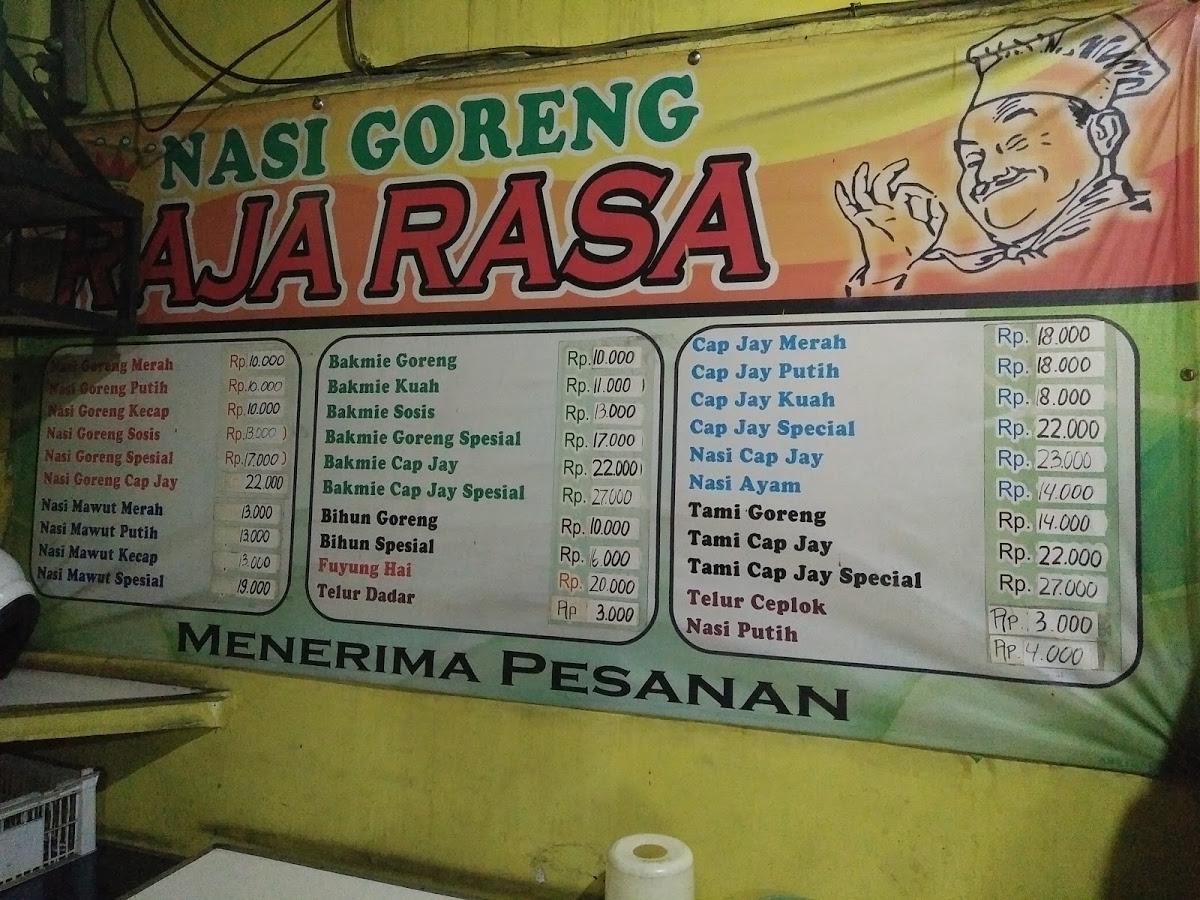 NASI GORENG
RAJA RASA
Nasi Goreng Merah Rp. 10.000
Nasi Goreng Putih Rp. 10.000
Nasi Goreng Kecap Rp. 10.000
Nasi Goreng Sosis Rp. 13.000
Nasi Goreng Spesial Rp. 17.000
Nasi Goreng Cap Jay 22.000
Nasi Mawut Merah 13.000
Nasi Mawut Putih 13.000
Nasi Mawut Kecap 13.000
Nasi Mawut Spesial 19.000
Bakmie Goreng Rp. 10.000
Bakmie Kuah Rp. 11.000
Bakmie Sosis Rp. 13000
Bakmie Goreng Spesial Rp. 17.000
Bakmie Cap Jay Rp. 22.000
Bakmie Cap Jay Spesial Rp. 27.000
Bihun Goreng Rp. 10.000
Bihun Spesial Rp. 16.000
Fuyung Hai Rp. 20.000
Telur Dadar Rp 3.000
Cap Jay Merah Rp. 18.000
Cap Jay Putih Rp. 18.000
Cap Jay Kuah Rp. 18.000
Cap Jay Special Rp. 22.000
Nasi Cap Jay Rp. 23.000
Nasi Ayam Rp. 14.000
Tami Goreng Rp. 14.000
Tami Cap Jay Rp. 22.000
Tami Cap Jay Special Rp. 27.000
Telur Ceplok Rp. 3.000
Nasi Putih Rp. 4.000
MENERIMA PESANAN